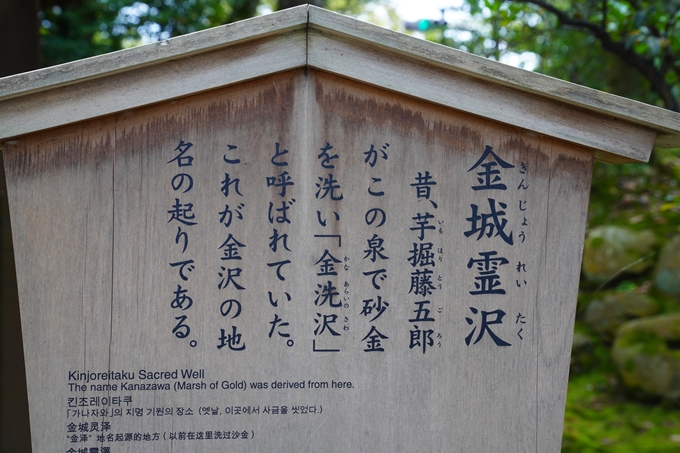 金城霊沢
きんじょうれいたく
昔、芋掘藤五郎
いもほりとうごろう
がこの泉で砂金
を洗い「金洗沢」
かなあらいのさわ
と呼ばれていた。
これが金沢の地
名の起りである。
Kinjoreitaku Sacred Well
The name Kanazawa (Marsh of Gold) was derived from here.
킨조레이타쿠
「가나자와」의 지명 기원의 장소 (옛날, 이곳에서 사금을 씻었다.)
金城灵泽
"金泽" 地名起源的地方（以前在这里洗过沙金）
金城靈澤